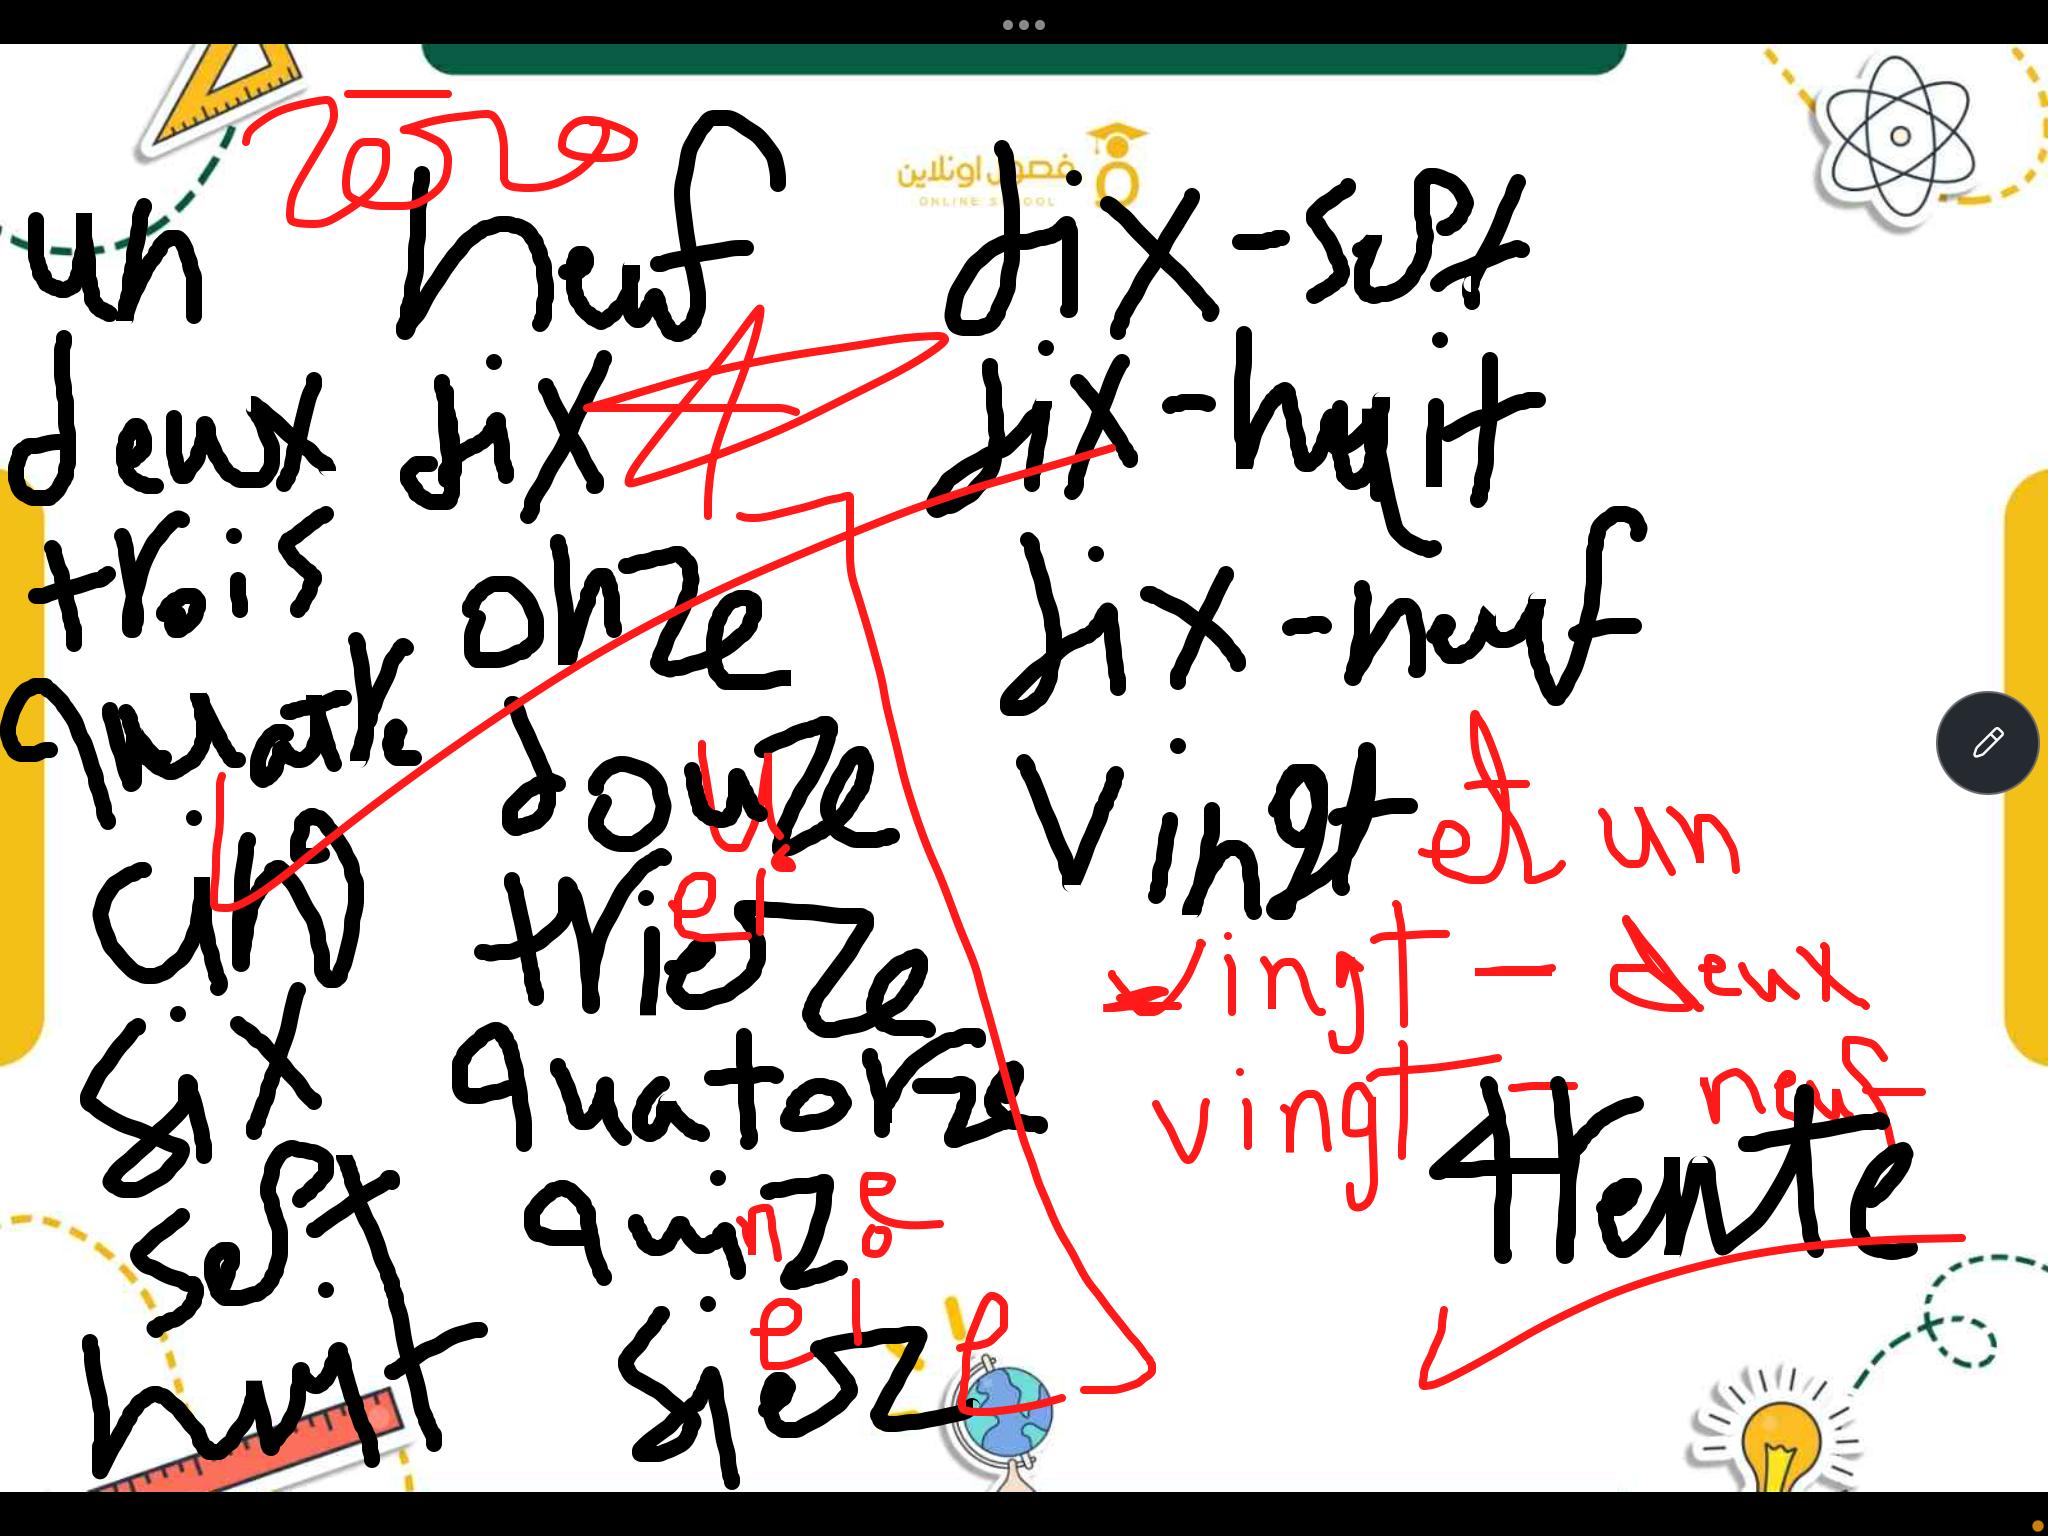 zero
فصول اونلاين
ONLINE SCHOOL
un
deux
trois
quatre
cinq
six
sept
huit
neuf
dix
onze
douze
u
trieze
ei
quatorze
quize
n e
sieze
ei e
dix-sept
dix-huit
dix-neuf
vingt et un
vingt - deux
vingt - neuf
trente